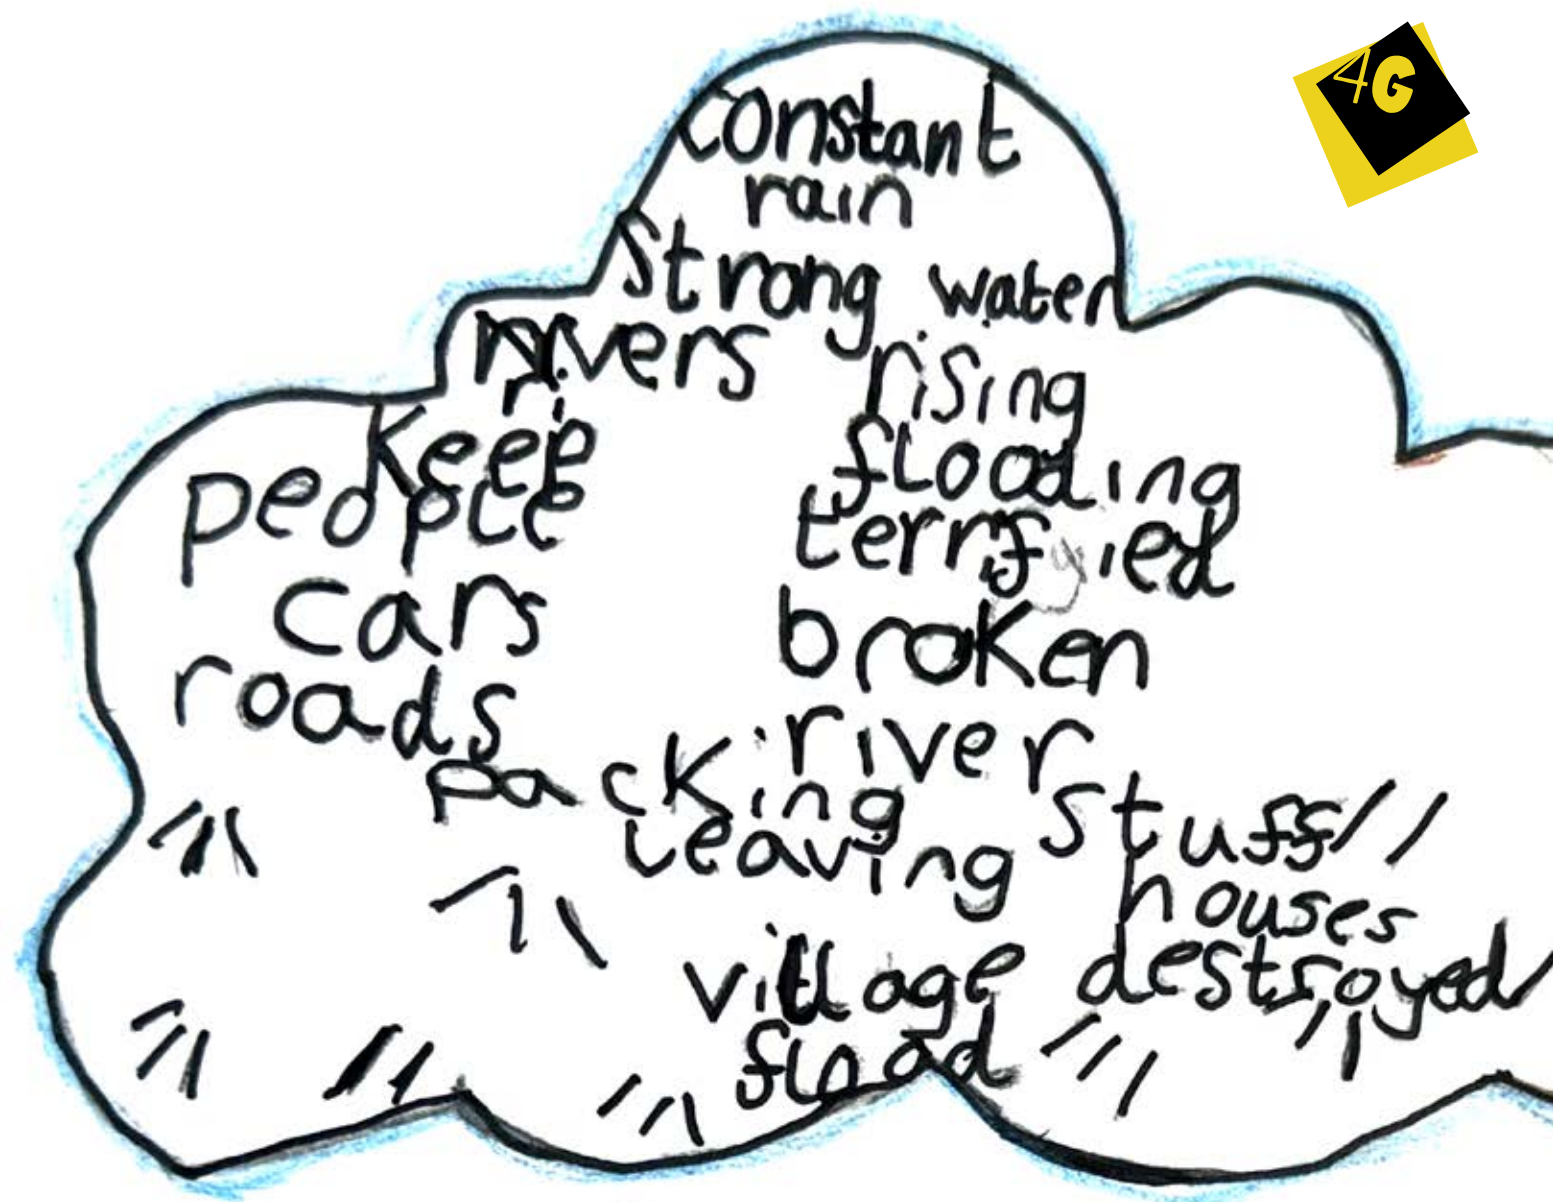 4G
constant
rain
Strong water
rivers rising
Keep flooding
people terrified
cars broken
roads river
packing stuff
leaving houses
village destroyed
flood